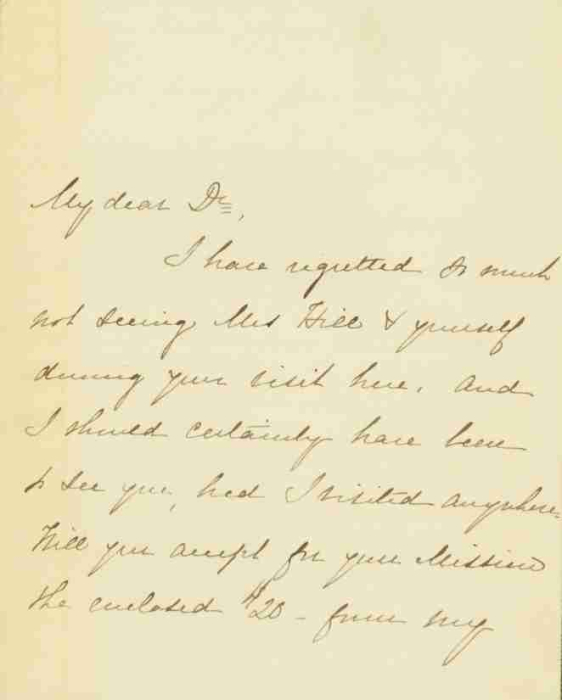 My dear Dr,
I have regretted so much
not seeing Mrs Hill & yourself
during your visit here. And
I should certainly have been
to see you, had I visited anywhere.
Will you accept for your Mission
the enclosed $20 - from my